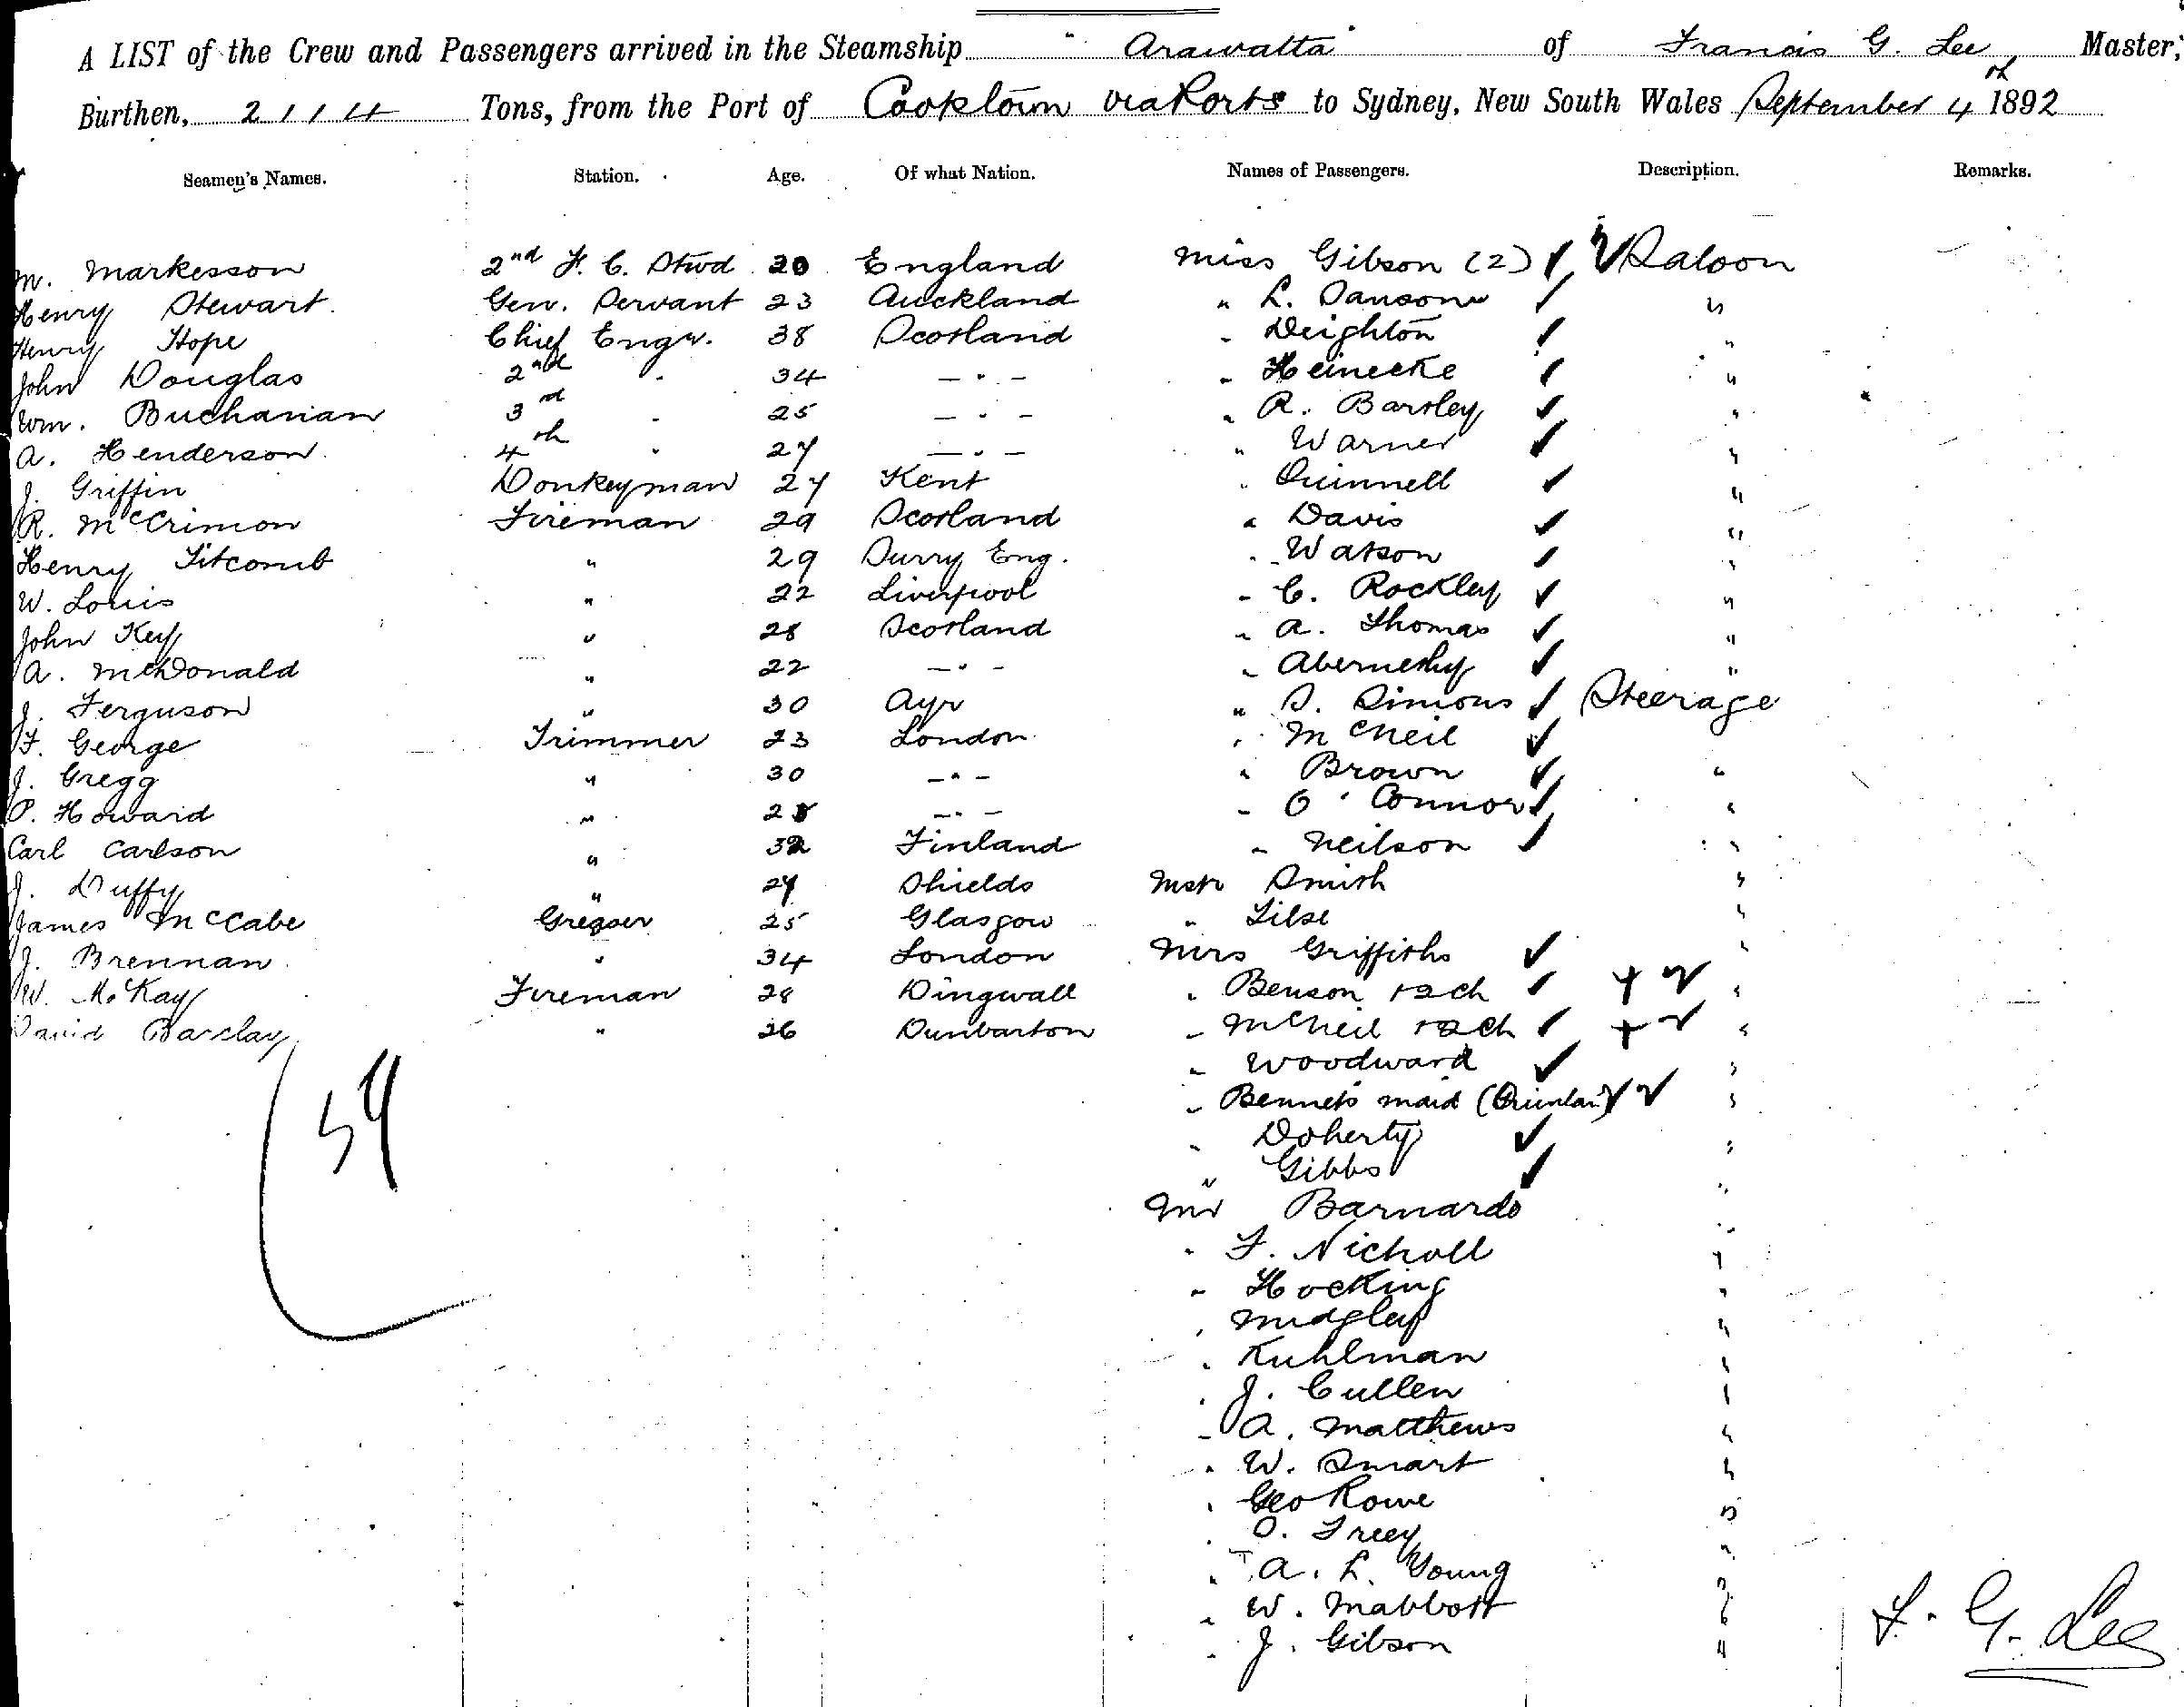 A LIST of the Crew and Passengers arrived in the Steamship "Arawatta" of Francis G. Lee Master,
Burthen, 2114 Tons, from the Port of Cooktown via Ports to Sydney, New South Wales September 4th 1892
Seamen's Names. Station. Age. Of what Nation. Names of Passengers. Description. Remarks.
M. Markesson 2nd F. C. Stwd 20 England Miss Gibson (2) Saloon
Henry Stewart. Gen. Servant 23 Auckland " L. "
Henry Hope Chief Engr. 38 Scotland " Deighton "
John Douglas 2nd " 34 — " — " Heinecke "
Wm. Buchanan 3rd " 25 — " — " R. Barsley "
A. Henderson 4th " 27 — " — " Warner "
J. Griffin Donkeyman 27 Kent " Quinnell "
R. McCrimon Fireman 29 Scotland " Davis "
Henry Titcomb " 29 Surry Eng. " Watson "
W. Louis " 22 Liverpool " C. Rockley "
John Key " 28 Scotland " A. Thomas "
A. McDonald " 22 — " — " Abernethy "
J. Ferguson " 30 Ayr " S. Simons Steerage
F. George Trimmer 23 London " McNeil
J. Gregg " 30 — " — " Brown "
P. Howard " 28 — " — " O'Connor "
Carl Carlson " 32 Finland " Neilson "
J. Duffy " 27 Shields Mstr Smith "
James McCabe Greaser 25 Glasgow " "
J. Brennan " 34 London Mrs Griffiths "
W. McKay Fireman 28 Dingwall " Benson + 2 ch "
David Barclay " 26 Dunbarton " McNeil + 2 ch "
" Woodward "
" Bennets maid "
" Doherty "
" Gibbs "
Mr Barnardo "
" F. Nicholl "
" Hocking "
" Midgley "
" Kuhlman "
" J. Cullen "
" A. Matthews "
" W. Smart "
" Geo Rowe "
" O. "
" A. L. Young "
" W. Mabbott "
" J. Gibson "
F. G. Lee